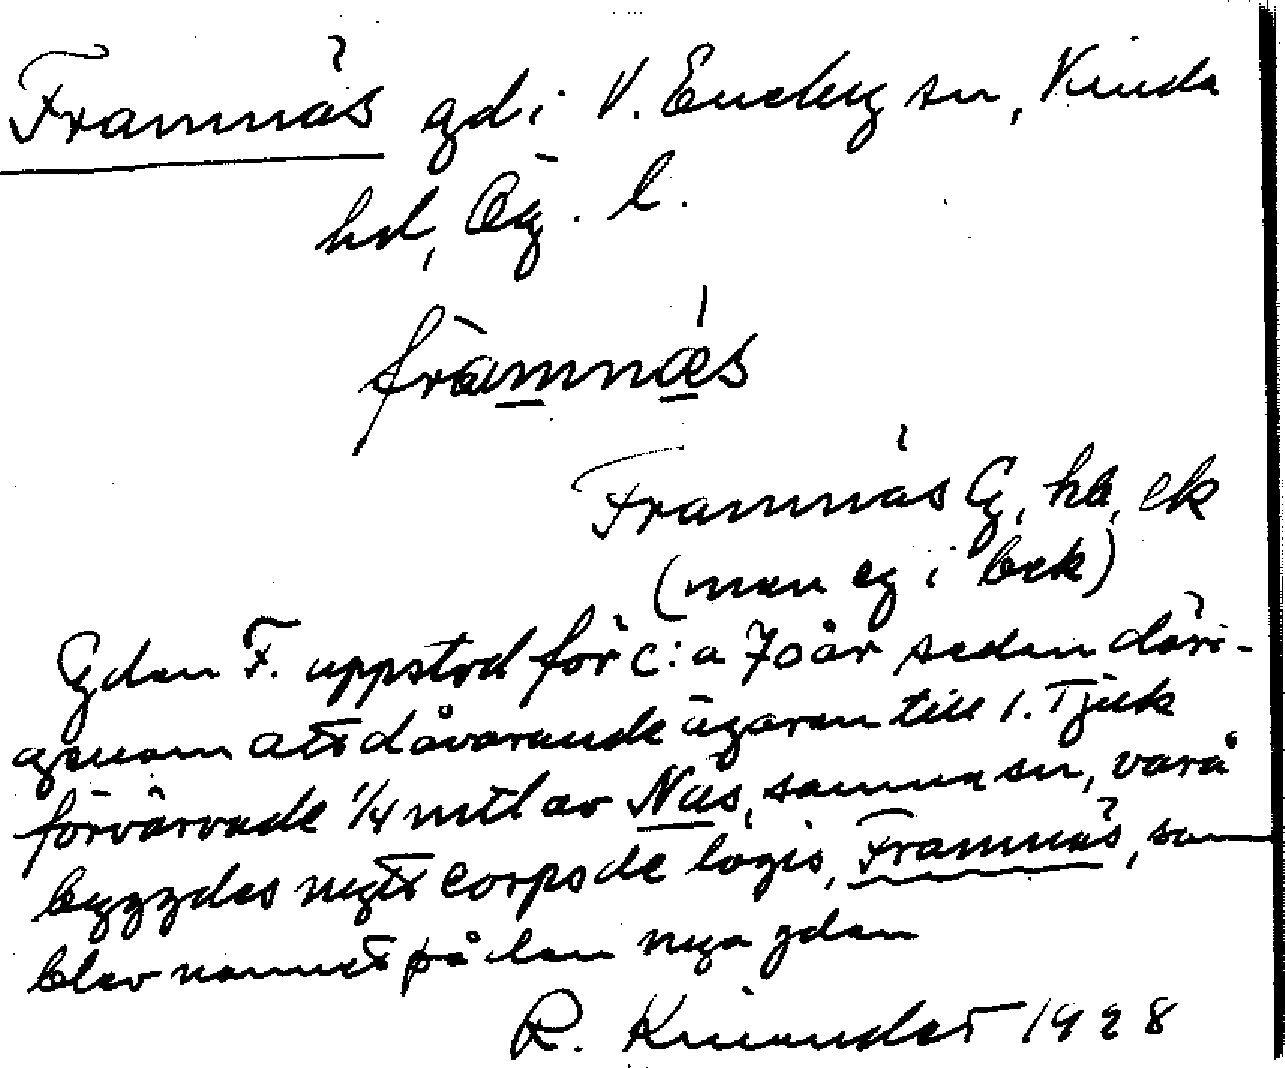 Framnäs gd i V. Eneby sn, Kinda
hd, Ög. l.
fràmnæ̀s
Framnäs G, hb, ek
(man eg i bek)
Gden F. uppstod för c:a 70 år sedan däri-
genom att dåvarande ägaren till l. Tjuk
förvärvade 1/4 mtl av Näs, samma sn, varå
byggdes nytt corps de logis, Framnäs, som
blev namnet på den nya gden
R. Kinander 1928